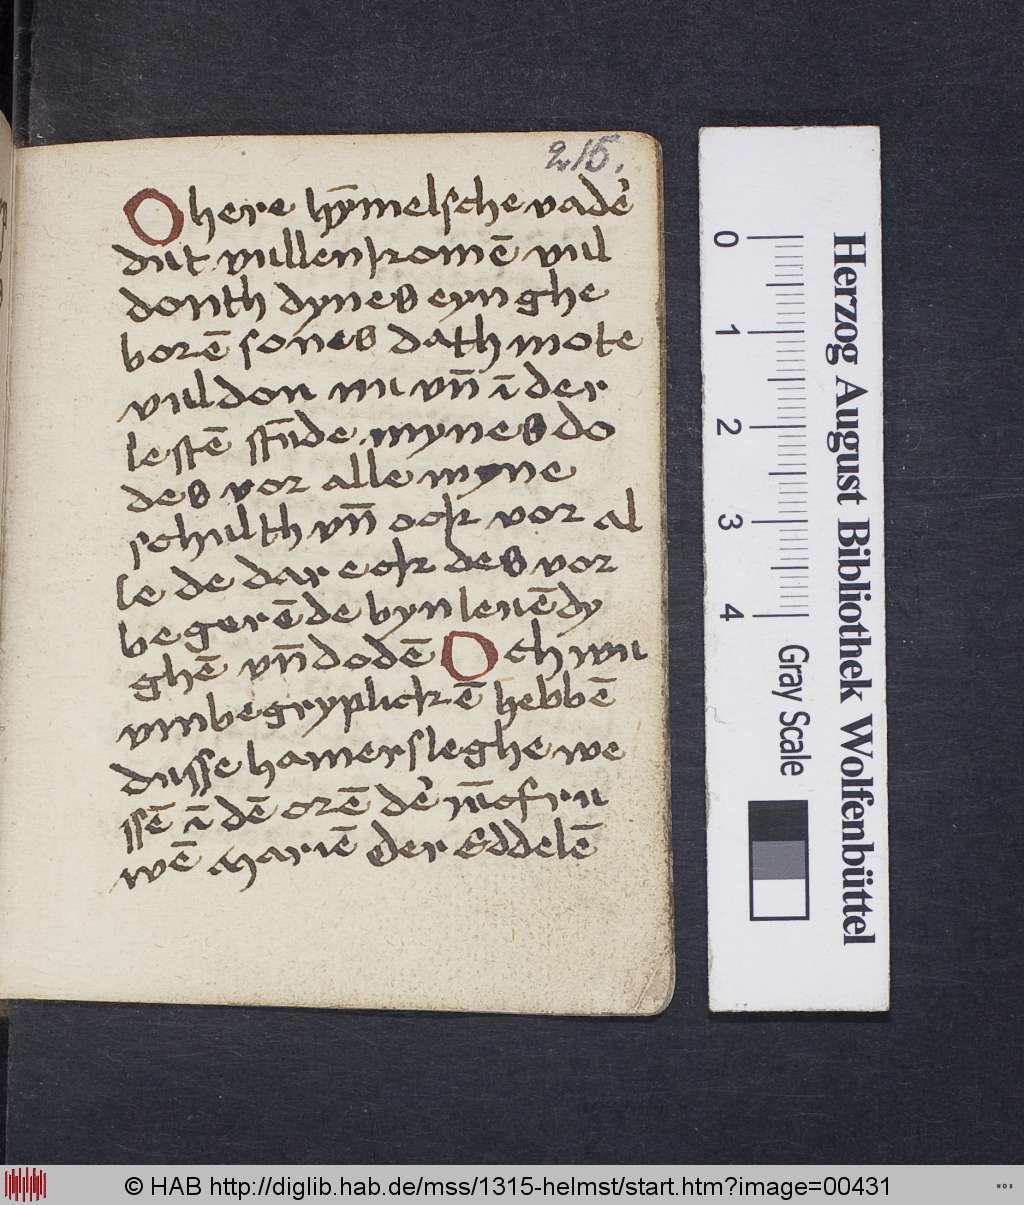 215.
O here hȳmelsche vade᷑
dut vullenkomē vul
donth dynes eynghe
borē sones dath mote
vuldon nu vn̄ ī der
lestē stūde mynes do
des vor alle myne
schulth vn̄ ock vor al
le de dar eck des vor
begerēde byn leuēdy
ghē vn̄ dodē Och wu
vmbegryplickē hebbē
dusse hamersleghe we
ssē ī dē orē de᷑ iūcfru
wē Mariē der Eddelē
Herzog August Bibliothek Wolfenbüttel
0 1 2 3 4
Gray Scale
© HAB http://diglib.hab.de/mss/1315-helmst/start.htm?image=00431